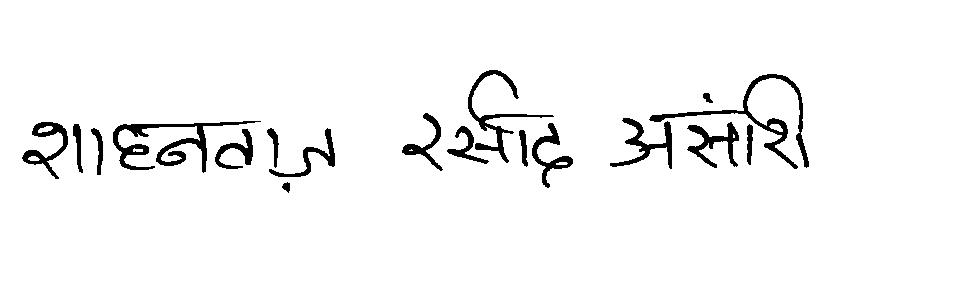 शाहनताज़ रसीद असंारी